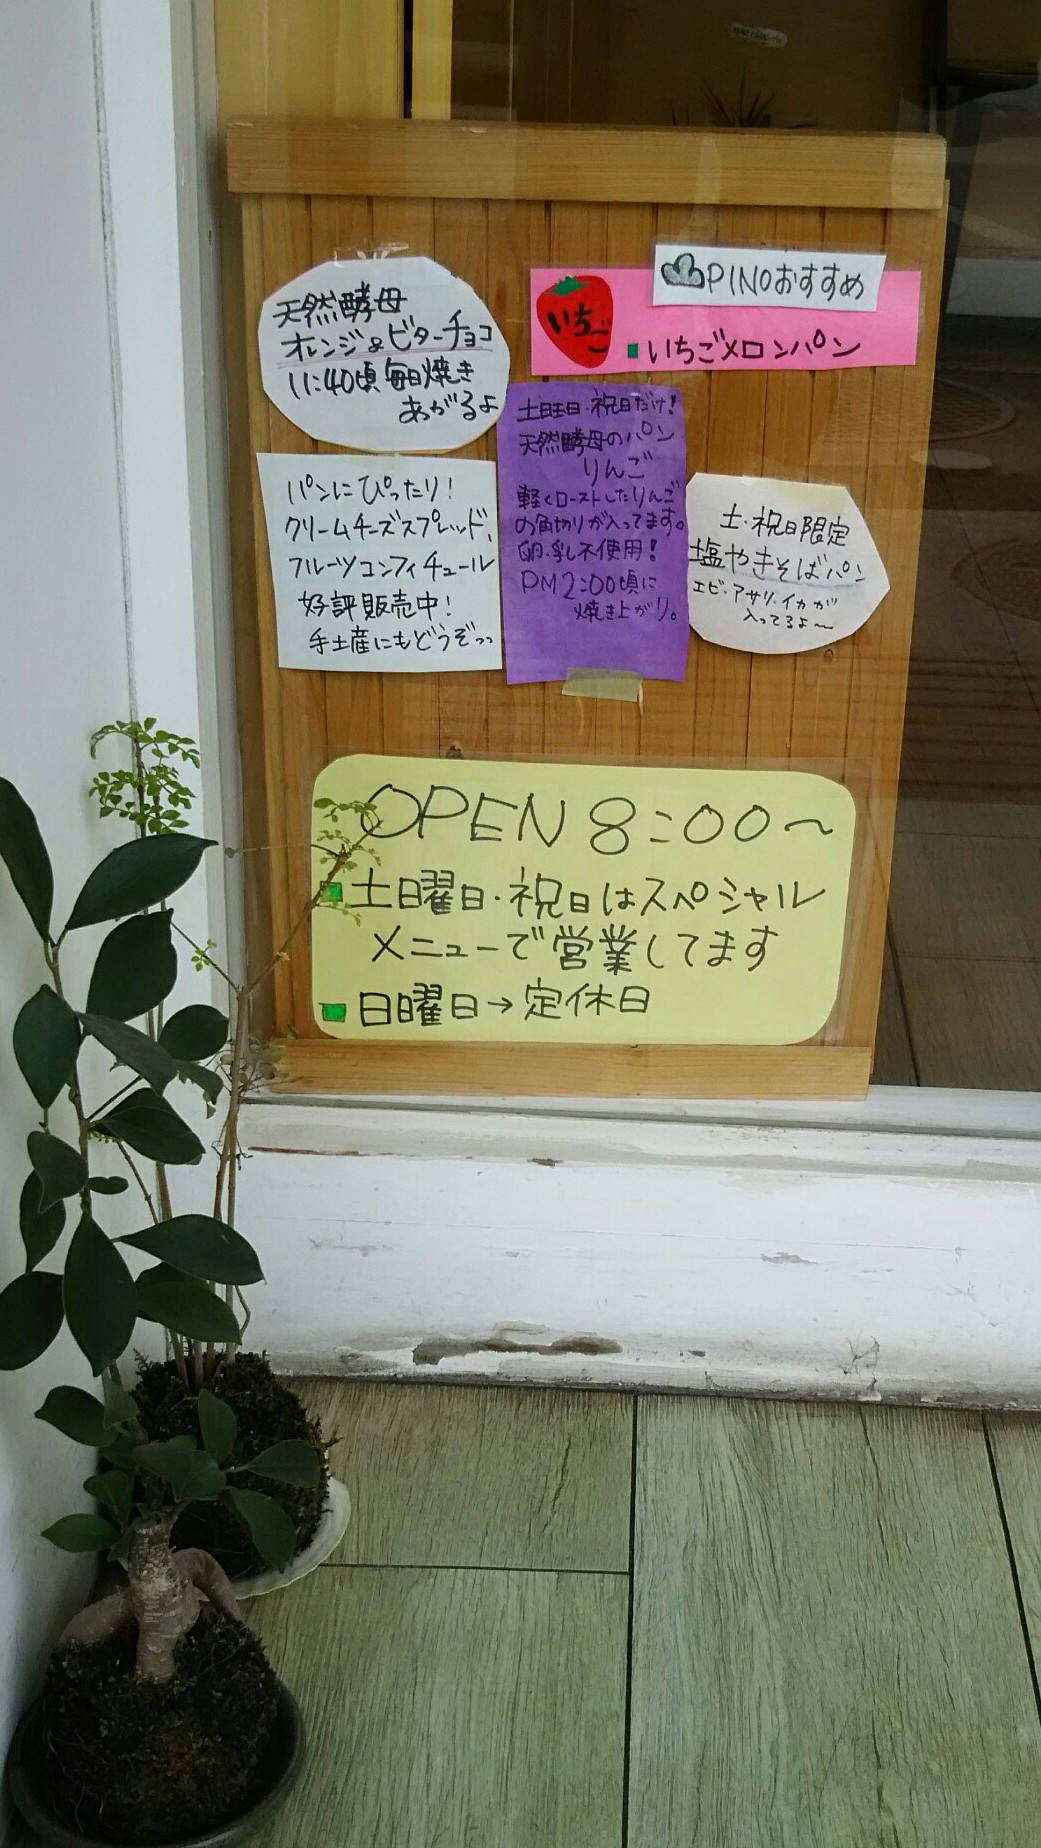 天然酵母
オレンジ&ビターチョコ
11:40頃毎日焼き
あがるよ
PINOおすすめ
いちご
いちごメロンパン
土曜日・祝日だけ!
天然酵母のパン
りんご
軽くローストしたりんご
の角切りが入ってます。
卵・乳不使用!
PM2:00頃に
焼き上がり。
パンにぴったり!
クリームチーズスプレッド、
フルーツコンフィチュール
好評販売中!
手土産にもどうぞっっ
土・祝日限定
塩やきそばパン
エビ・アサリ・イカが
入ってるよ~
OPEN 8:00~
土曜日・祝日はスペシャル
メニューで営業してます
日曜日→定休日